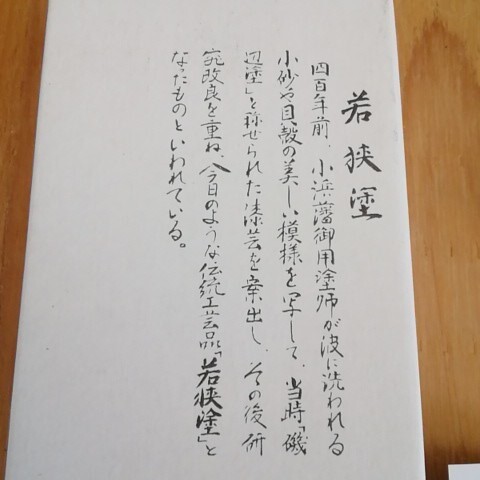 若狭塗
四百年前、小浜藩御用塗師が波に洗われる
小砂や貝殻の美しい模様を写して、当時「磯
辺塗」と称せられた漆芸を案出し、その後研
究改良を重ね、今日のような伝統工芸品「若狭塗」と
なったものといわれている。